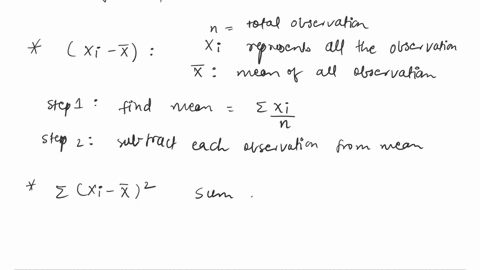 n = total observation
* (xi - x̄) : xi represents all the observation
x̄ : mean of all observation
step 1 : find mean = Σ xi/n
step 2 : subtract each observation from mean
* Σ (xi - x̄)² sum